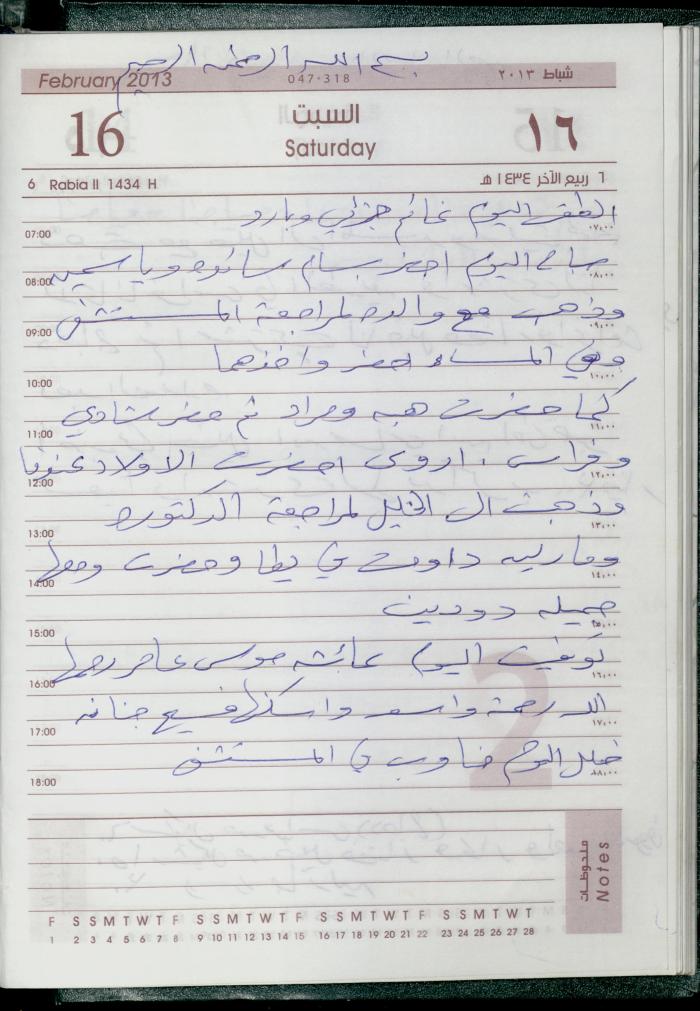 بسم الله الرحمن الرحيم
February 2013 047-318 شباط ٢٠١٣
16 السبت ١٦
Saturday
6 Rabia II 1434 H ٦ ربيع الآخر ١٤٣٤ هـ
الطقس اليوم غائم جزئي وبارد
07:00 ٠٧,٠٠
صباح اليوم احضر بسام سائده وياسمين
08:00 ٠٨,٠٠
وذهب مع والده لمراجعة المستشفى
09:00 ٠٩,٠٠
وفي المساء حضر واخذهما
10:00 ١٠,٠٠
كما حضرت هبه ومراد ثم حضر شادي
11:00 ١١,٠٠
وفراس . اروى احضرت الاولاد عندنا
12:00 ١٢,٠٠
وذهبت الى الخليل لمراجعة الدكتوره
13:00 ١٣,٠٠
وماريه داومت في يطا وحضرت ومعها
14:00 ١٤,٠٠
جميله دودين
15:00 ١٥,٠٠
توفيت اليوم عائشه موسى عامر رحمها
16:00 ١٦,٠٠
الله رحمة واسعه واسكنها فسيح جنانه
17:00 ١٧,٠٠
خليل اليوم مناوب في المستشفى
18:00 ١٨,٠٠
2
ملحوظات
Notes
F S S M T W T F S S M T W T F S S M T W T F S S M T W T
1 2 3 4 5 6 7 8 9 10 11 12 13 14 15 16 17 18 19 20 21 22 23 24 25 26 27 28